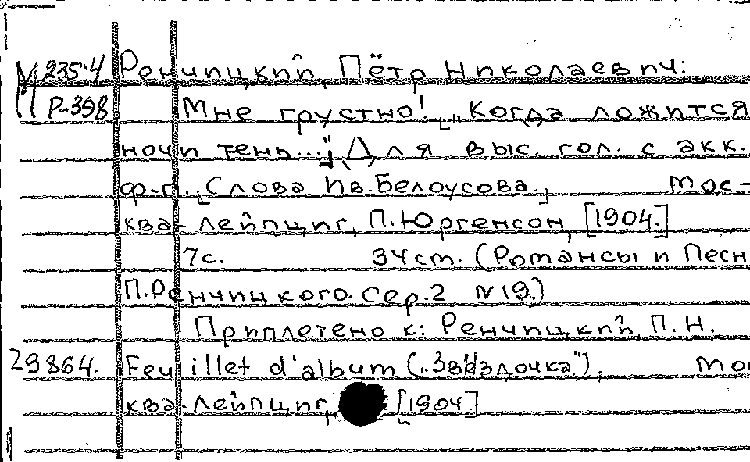 У 235-4 Ренчицкий, Пётр Николаевич:
Р-398 Мне грустно! „Когда ложится
ночи тень..." Для выс. гол. с акк.
ф-п. [Слова Ив. Белоусова.] Мос-
ква-Лейпциг, П. Юргенсон, [1904.]
7с. 34 cm. (Романсы и Песн
П. Ренчицкого. Сер. 2 N 19.)
Приплетено к: Ренчицкий, П. Н.
29864. Feuillet d'album („Звёздочка"), Мо
ква-Лейпциг, [1904]